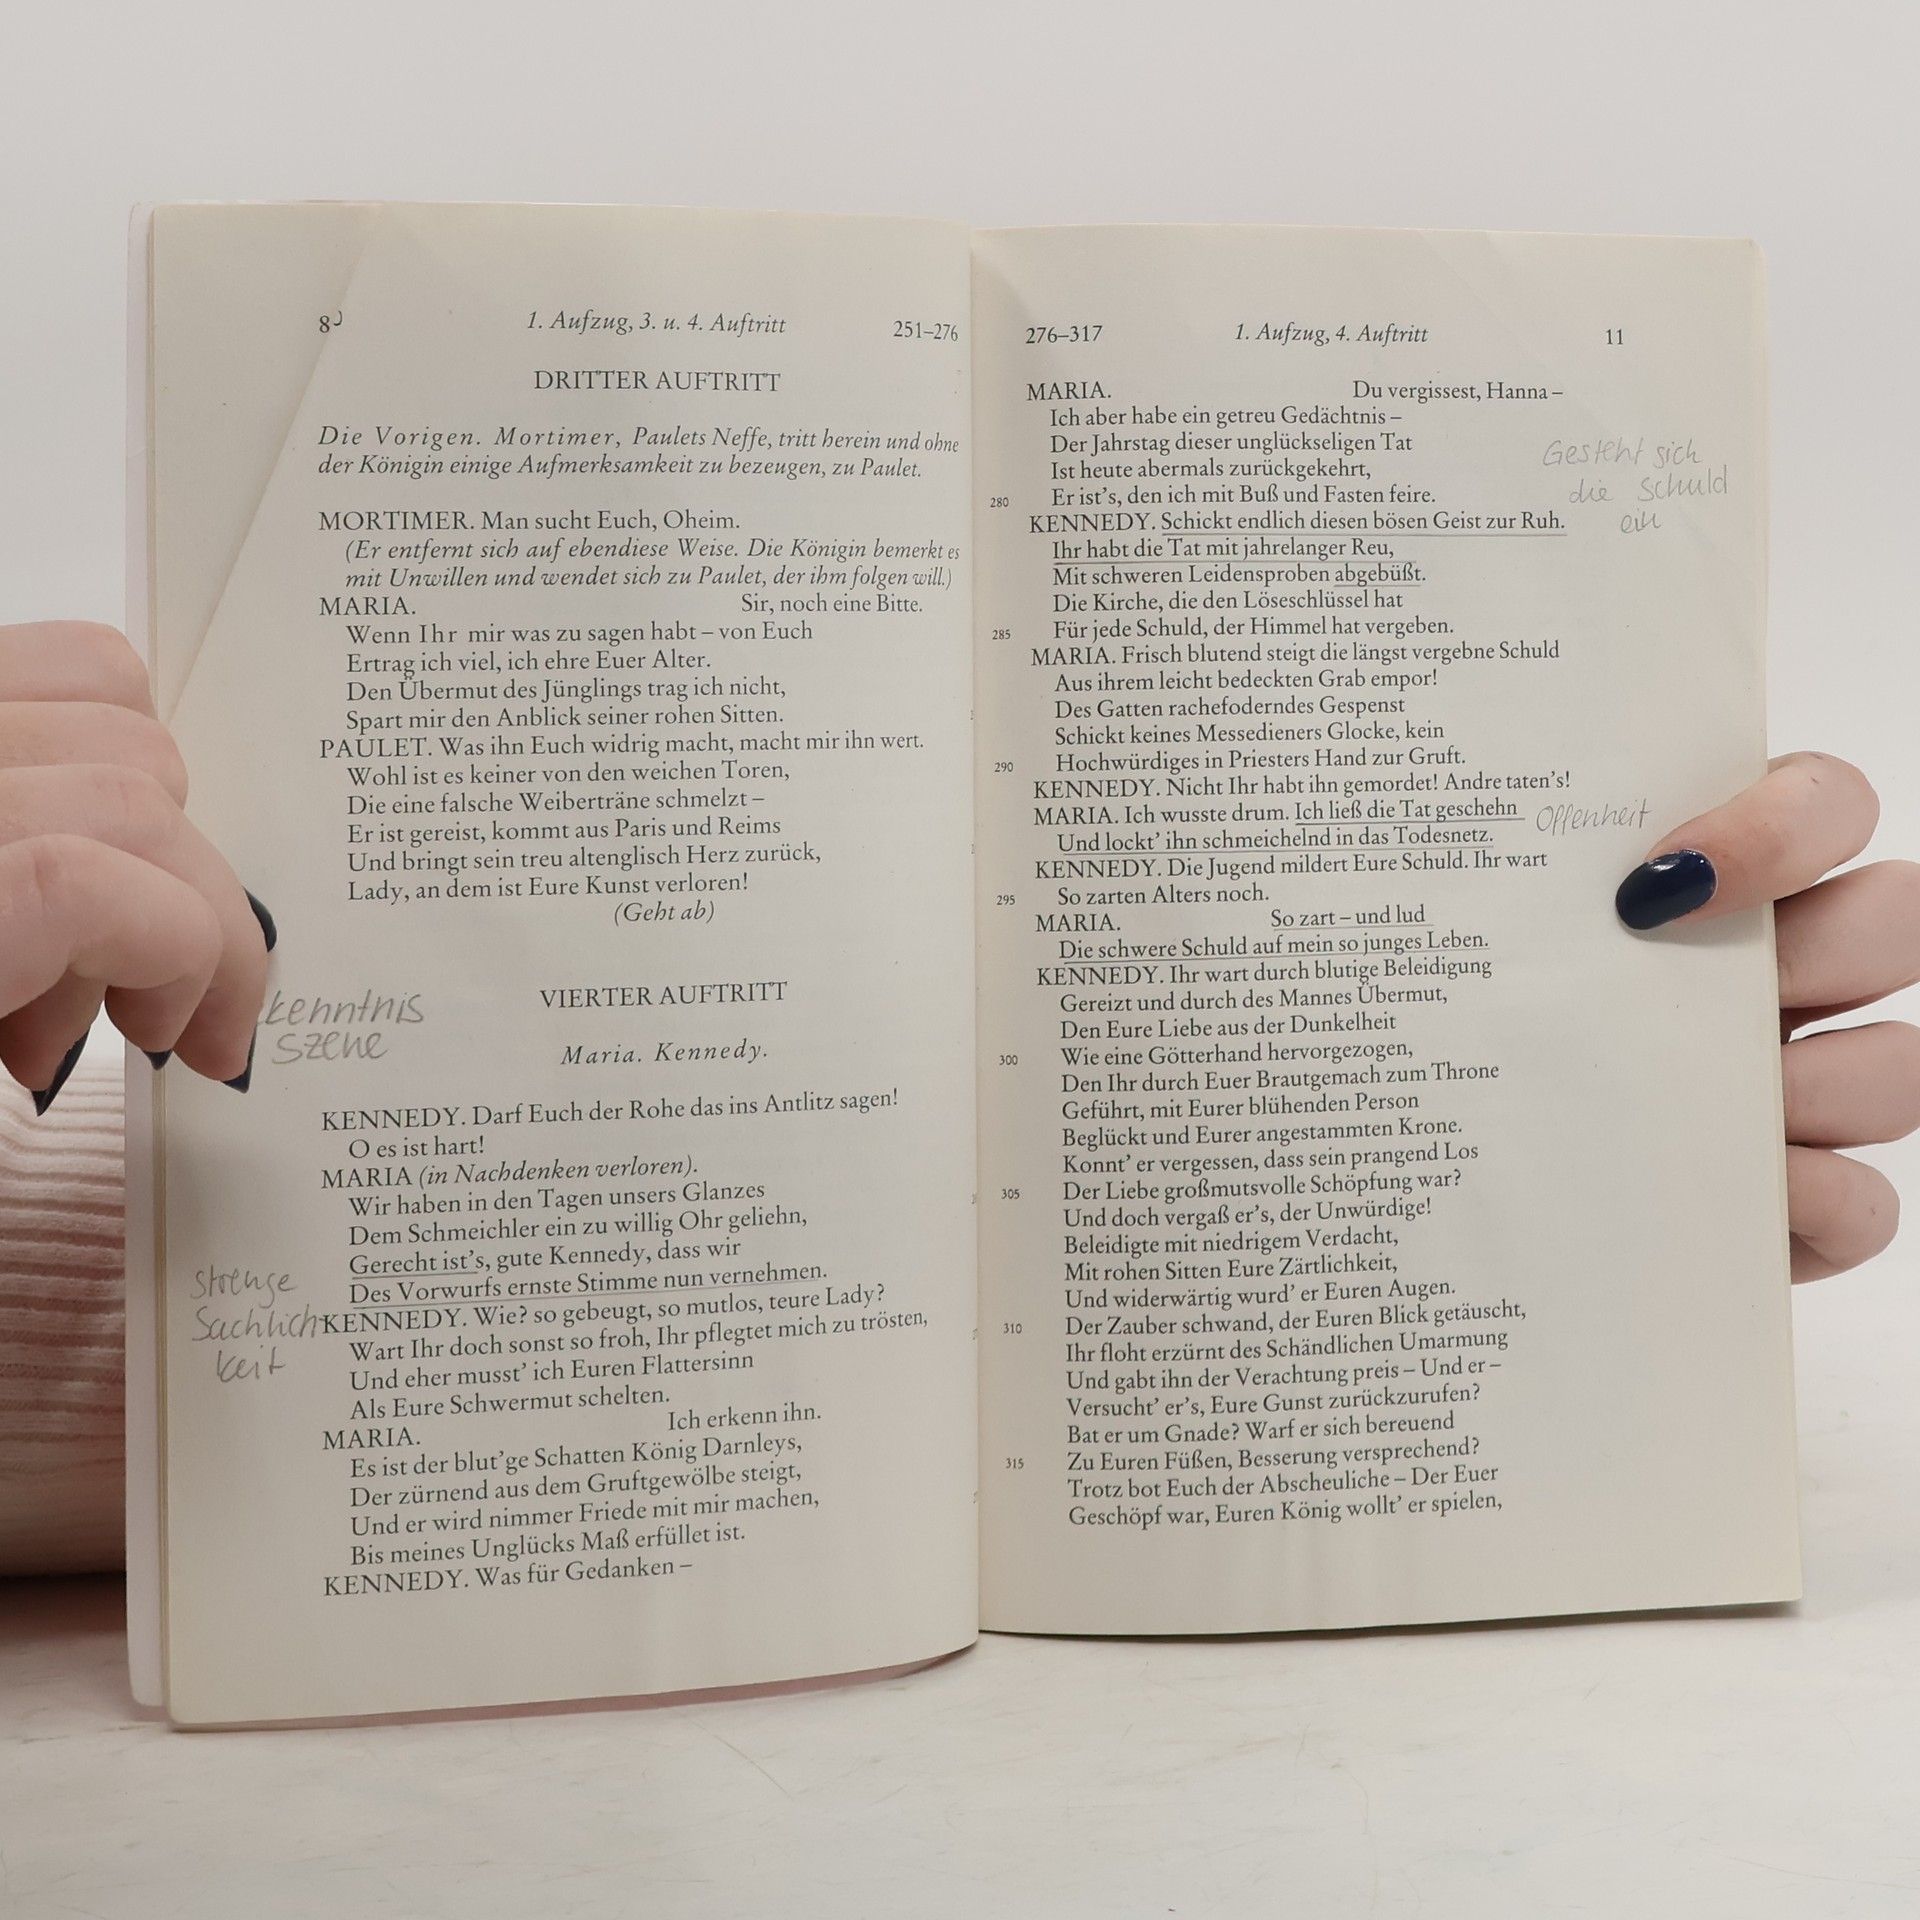 8
1. Aufzug, 3. u. 4. Auftritt
251–276
DRITTER AUFTRITT
Die Vorigen. Mortimer, Paulets Neffe, tritt herein und ohne
der Königin einige Aufmerksamkeit zu bezeugen, zu Paulet.
MORTIMER. Man sucht Euch, Oheim.
(Er entfernt sich auf ebendiese Weise. Die Königin bemerkt es
mit Unwillen und wendet sich zu Paulet, der ihm folgen will.)
MARIA. Sir, noch eine Bitte.
Wenn Ihr mir was zu sagen habt – von Euch
Ertrag ich viel, ich ehre Euer Alter.
Den Übermut des Jünglings trag ich nicht,
Spart mir den Anblick seiner rohen Sitten.
PAULET. Was ihn Euch widrig macht, macht mir ihn wert.
Wohl ist es keiner von den weichen Toren,
Die eine falsche Weiberträne schmelzt –
Er ist gereist, kommt aus Paris und Reims
Und bringt sein treu altenglisch Herz zurück,
Lady, an dem ist Eure Kunst verloren!
(Geht ab)
kenntnis
szene
VIERTER AUFTRITT
Maria. Kennedy.
KENNEDY. Darf Euch der Rohe das ins Antlitz sagen!
O es ist hart!
MARIA (in Nachdenken verloren).
Wir haben in den Tagen unsers Glanzes
Dem Schmeichler ein zu willig Ohr geliehn,
Gerecht ist's, gute Kennedy, dass wir
Des Vorwurfs ernste Stimme nun vernehmen.
strenge
Sachlich
keit
KENNEDY. Wie? so gebeugt, so mutlos, teure Lady?
Wart Ihr doch sonst so froh, Ihr pflegtet mich zu trösten,
Und eher musst' ich Euren Flattersinn
Als Eure Schwermut schelten.
MARIA. Ich erkenn ihn.
Es ist der blut'ge Schatten König Darnleys,
Der zürnend aus dem Gruftgewölbe steigt,
Und er wird nimmer Friede mit mir machen,
Bis meines Unglücks Maß erfüllet ist.
KENNEDY. Was für Gedanken –
276–317
1. Aufzug, 4. Auftritt
11
MARIA. Du vergissest, Hanna –
Ich aber habe ein getreu Gedächtnis –
Der Jahrstag dieser unglückseligen Tat
Ist heute abermals zurückgekehrt,
280 Er ist's, den ich mit Buß und Fasten feire.
Gesteht sich
die Schuld
ein
KENNEDY. Schickt endlich diesen bösen Geist zur Ruh.
Ihr habt die Tat mit jahrelanger Reu,
Mit schweren Leidensproben abgebüßt.
Die Kirche, die den Löseschlüssel hat
285 Für jede Schuld, der Himmel hat vergeben.
MARIA. Frisch blutend steigt die längst vergebne Schuld
Aus ihrem leicht bedeckten Grab empor!
Des Gatten rachefoderndes Gespenst
Schickt keines Messedieners Glocke, kein
290 Hochwürdiges in Priesters Hand zur Gruft.
KENNEDY. Nicht Ihr habt ihn gemordet! Andre taten's!
MARIA. Ich wusste drum. Ich ließ die Tat geschehn
Offenheit
Und lockt' ihn schmeichelnd in das Todesnetz.
KENNEDY. Die Jugend mildert Eure Schuld. Ihr wart
295 So zarten Alters noch.
MARIA. So zart – und lud
Die schwere Schuld auf mein so junges Leben.
KENNEDY. Ihr wart durch blutige Beleidigung
Gereizt und durch des Mannes Übermut,
Den Eure Liebe aus der Dunkelheit
300 Wie eine Götterhand hervorgezogen,
Den Ihr durch Euer Brautgemach zum Throne
Geführt, mit Eurer blühenden Person
Beglückt und Eurer angestammten Krone.
Konnt' er vergessen, dass sein prangend Los
305 Der Liebe großmutsvolle Schöpfung war?
Und doch vergaß er's, der Unwürdige!
Beleidigte mit niedrigem Verdacht,
Mit rohen Sitten Eure Zärtlichkeit,
Und widerwärtig wurd' er Euren Augen.
310 Der Zauber schwand, der Euren Blick getäuscht,
Ihr floht erzürnt des Schändlichen Umarmung
Und gabt ihn der Verachtung preis – Und er –
Versucht' er's, Eure Gunst zurückzurufen?
Bat er um Gnade? Warf er sich bereuend
315 Zu Euren Füßen, Besserung versprechend?
Trotz bot Euch der Abscheuliche – Der Euer
Geschöpf war, Euren König wollt' er spielen,